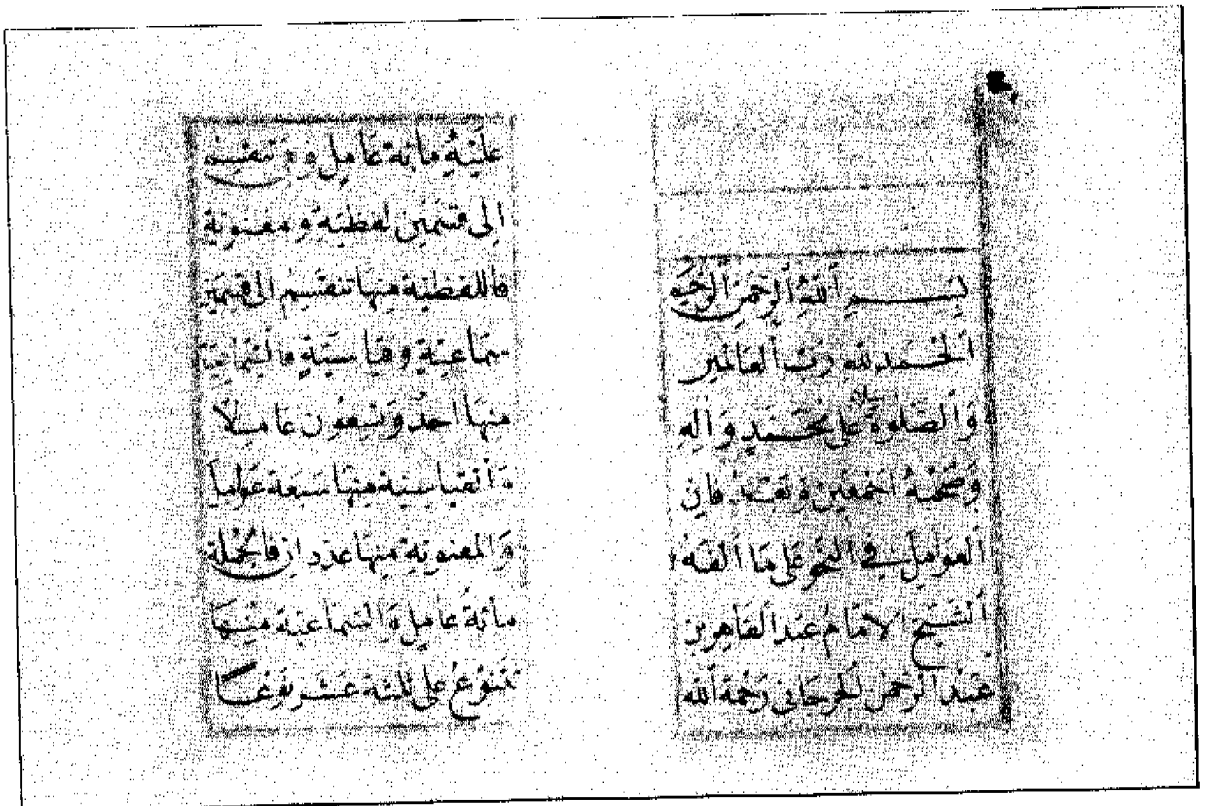 بِسْمِ ٱللهِ ٱلرَّحْمٰنِ ٱلرَّحِيمِ
اَلْحَمْدُ لِلّٰهِ رَبِّ ٱلْعَالَمِينَ
وَٱلصَّلٰوةُ عَلَى مُحَمَّدٍ وَآلِهِ
وَصَحْبِهِ اَجْمَعِينَ وَبَعْدُ فَاِنَّ
ٱلْعَوَامِلَ فِي ٱلنَّحْوِ عَلَى مَا أَلَّفَهُ
ٱلشَّيْخُ ٱلْاِمَامُ عَبْدُ ٱلْقَاهِرِ بْنِ
عَبْدِ ٱلرَّحْمٰنِ ٱلْجُرْجَانِي رَحْمَةُ ٱللهِ
عَلَيْهِ مِائَةُ عَامِلٍ وَهِيَ تَنْقَسِمُ
اِلَى قِسْمَيْنِ لَفْظِيَّةٍ وَمَعْنَوِيَّةٍ
فَاللَّفْظِيَّةُ مِنْهَا تَنْقَسِمُ اِلَى قِسْمَيْنِ
سَمَاعِيَّةٍ وَقِيَاسِيَّةٍ فَالسَّمَاعِيَّةُ
مِنْهَا اَحَدٌ وَتِسْعُونَ عَامِلًا
وَٱلْقِيَاسِيَّةُ مِنْهَا سَبْعَةُ عَوَامِلَ
وَٱلْمَعْنَوِيَّةُ مِنْهَا عَدَدَانِ فَالْجُمْلَةُ
مِائَةُ عَامِلٍ وَٱلسَّمَاعِيَّةُ مِنْهَا
تَتَنَوَّعُ عَلَى ثَلٰثَةَ عَشَرَ نَوْعًا